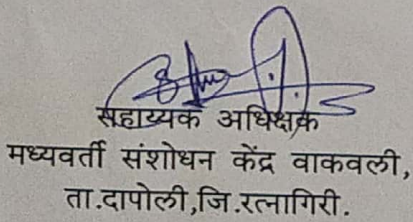 सहाय्यक अधिक्षक
मध्यवर्ती संशोधन केंद्र वाकवली,
ता.दापोली,जि.रत्नागिरी.